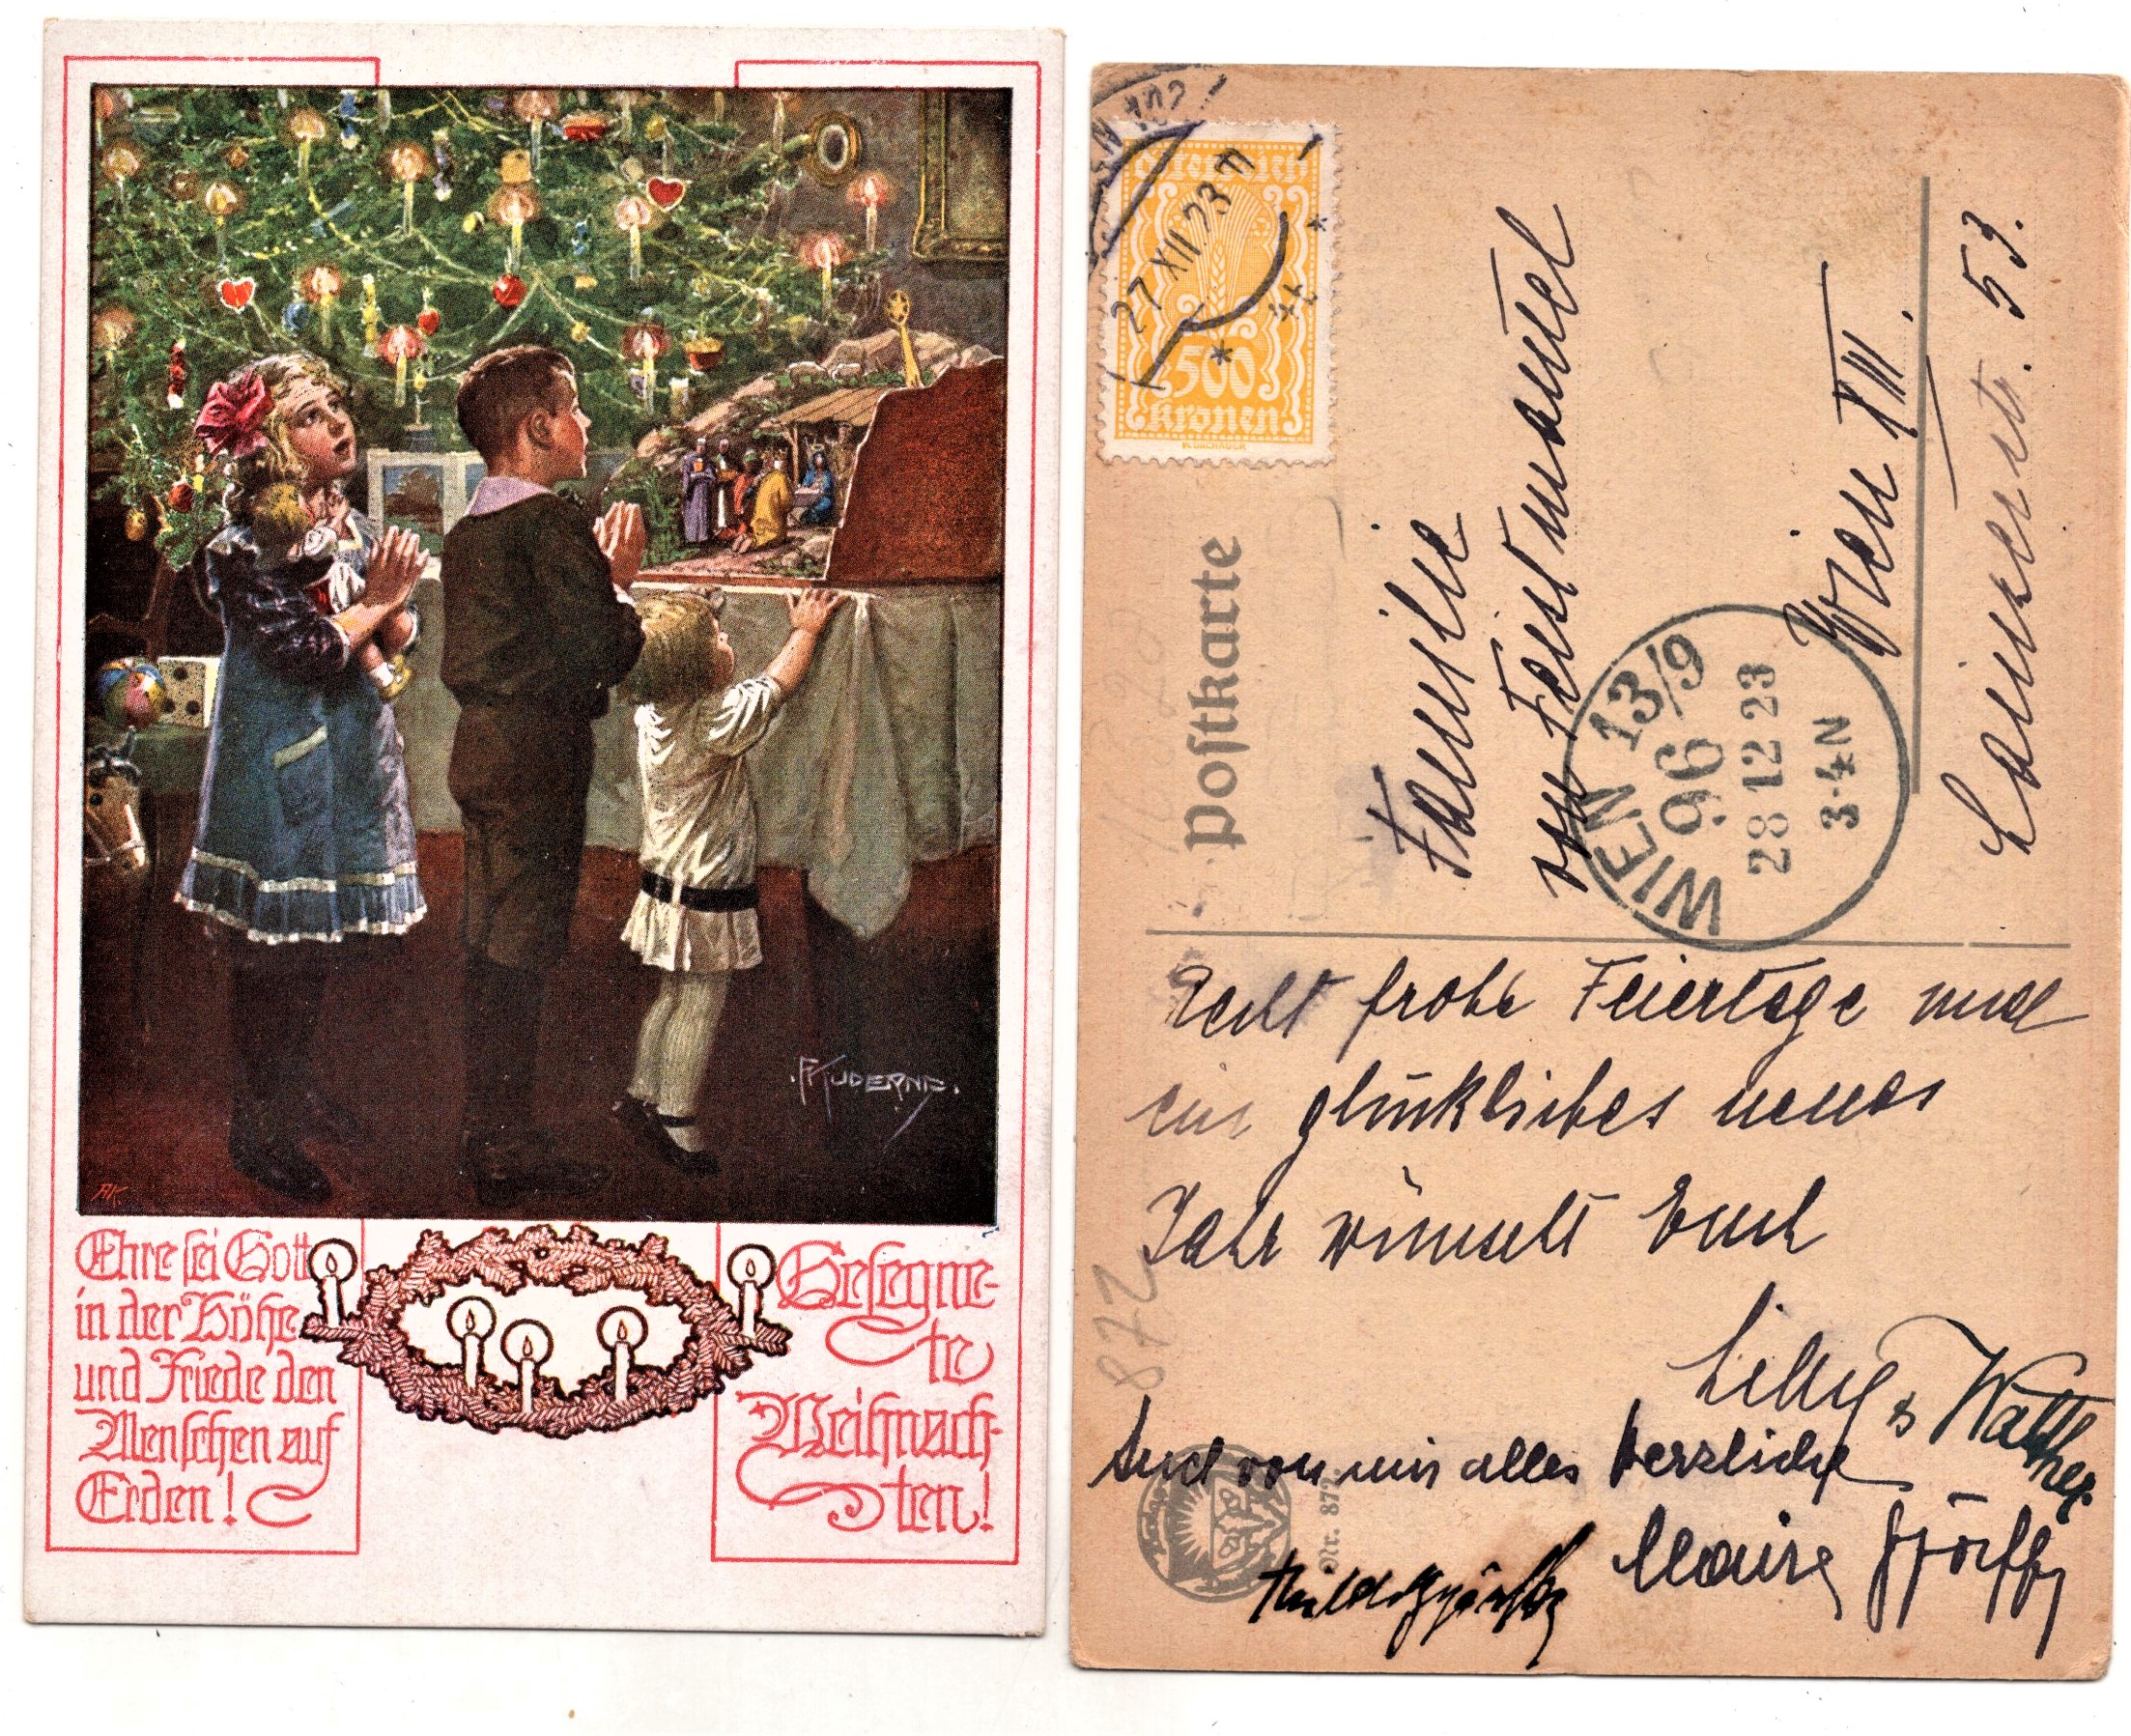 R KUDERNA.
AK
Ehre sei Gott
in der Höhe
und Friede den
Menschen auf
Erden!
Gesegne-
te
Weihnach-
ten!
27 XII 23 11
Österreich
500
Kronen
Postkarte
Familie
von Feistmantel
Wien XIII.
Lainzerstr. 53.
WIEN 13/9
96
28 12 23
3-4N
Recht frohe Feiertage und
ein glückliches neues
Jahr wünscht Euch
Lilly & Walther
Auch von mir alles herzliche
872
Nr. 872